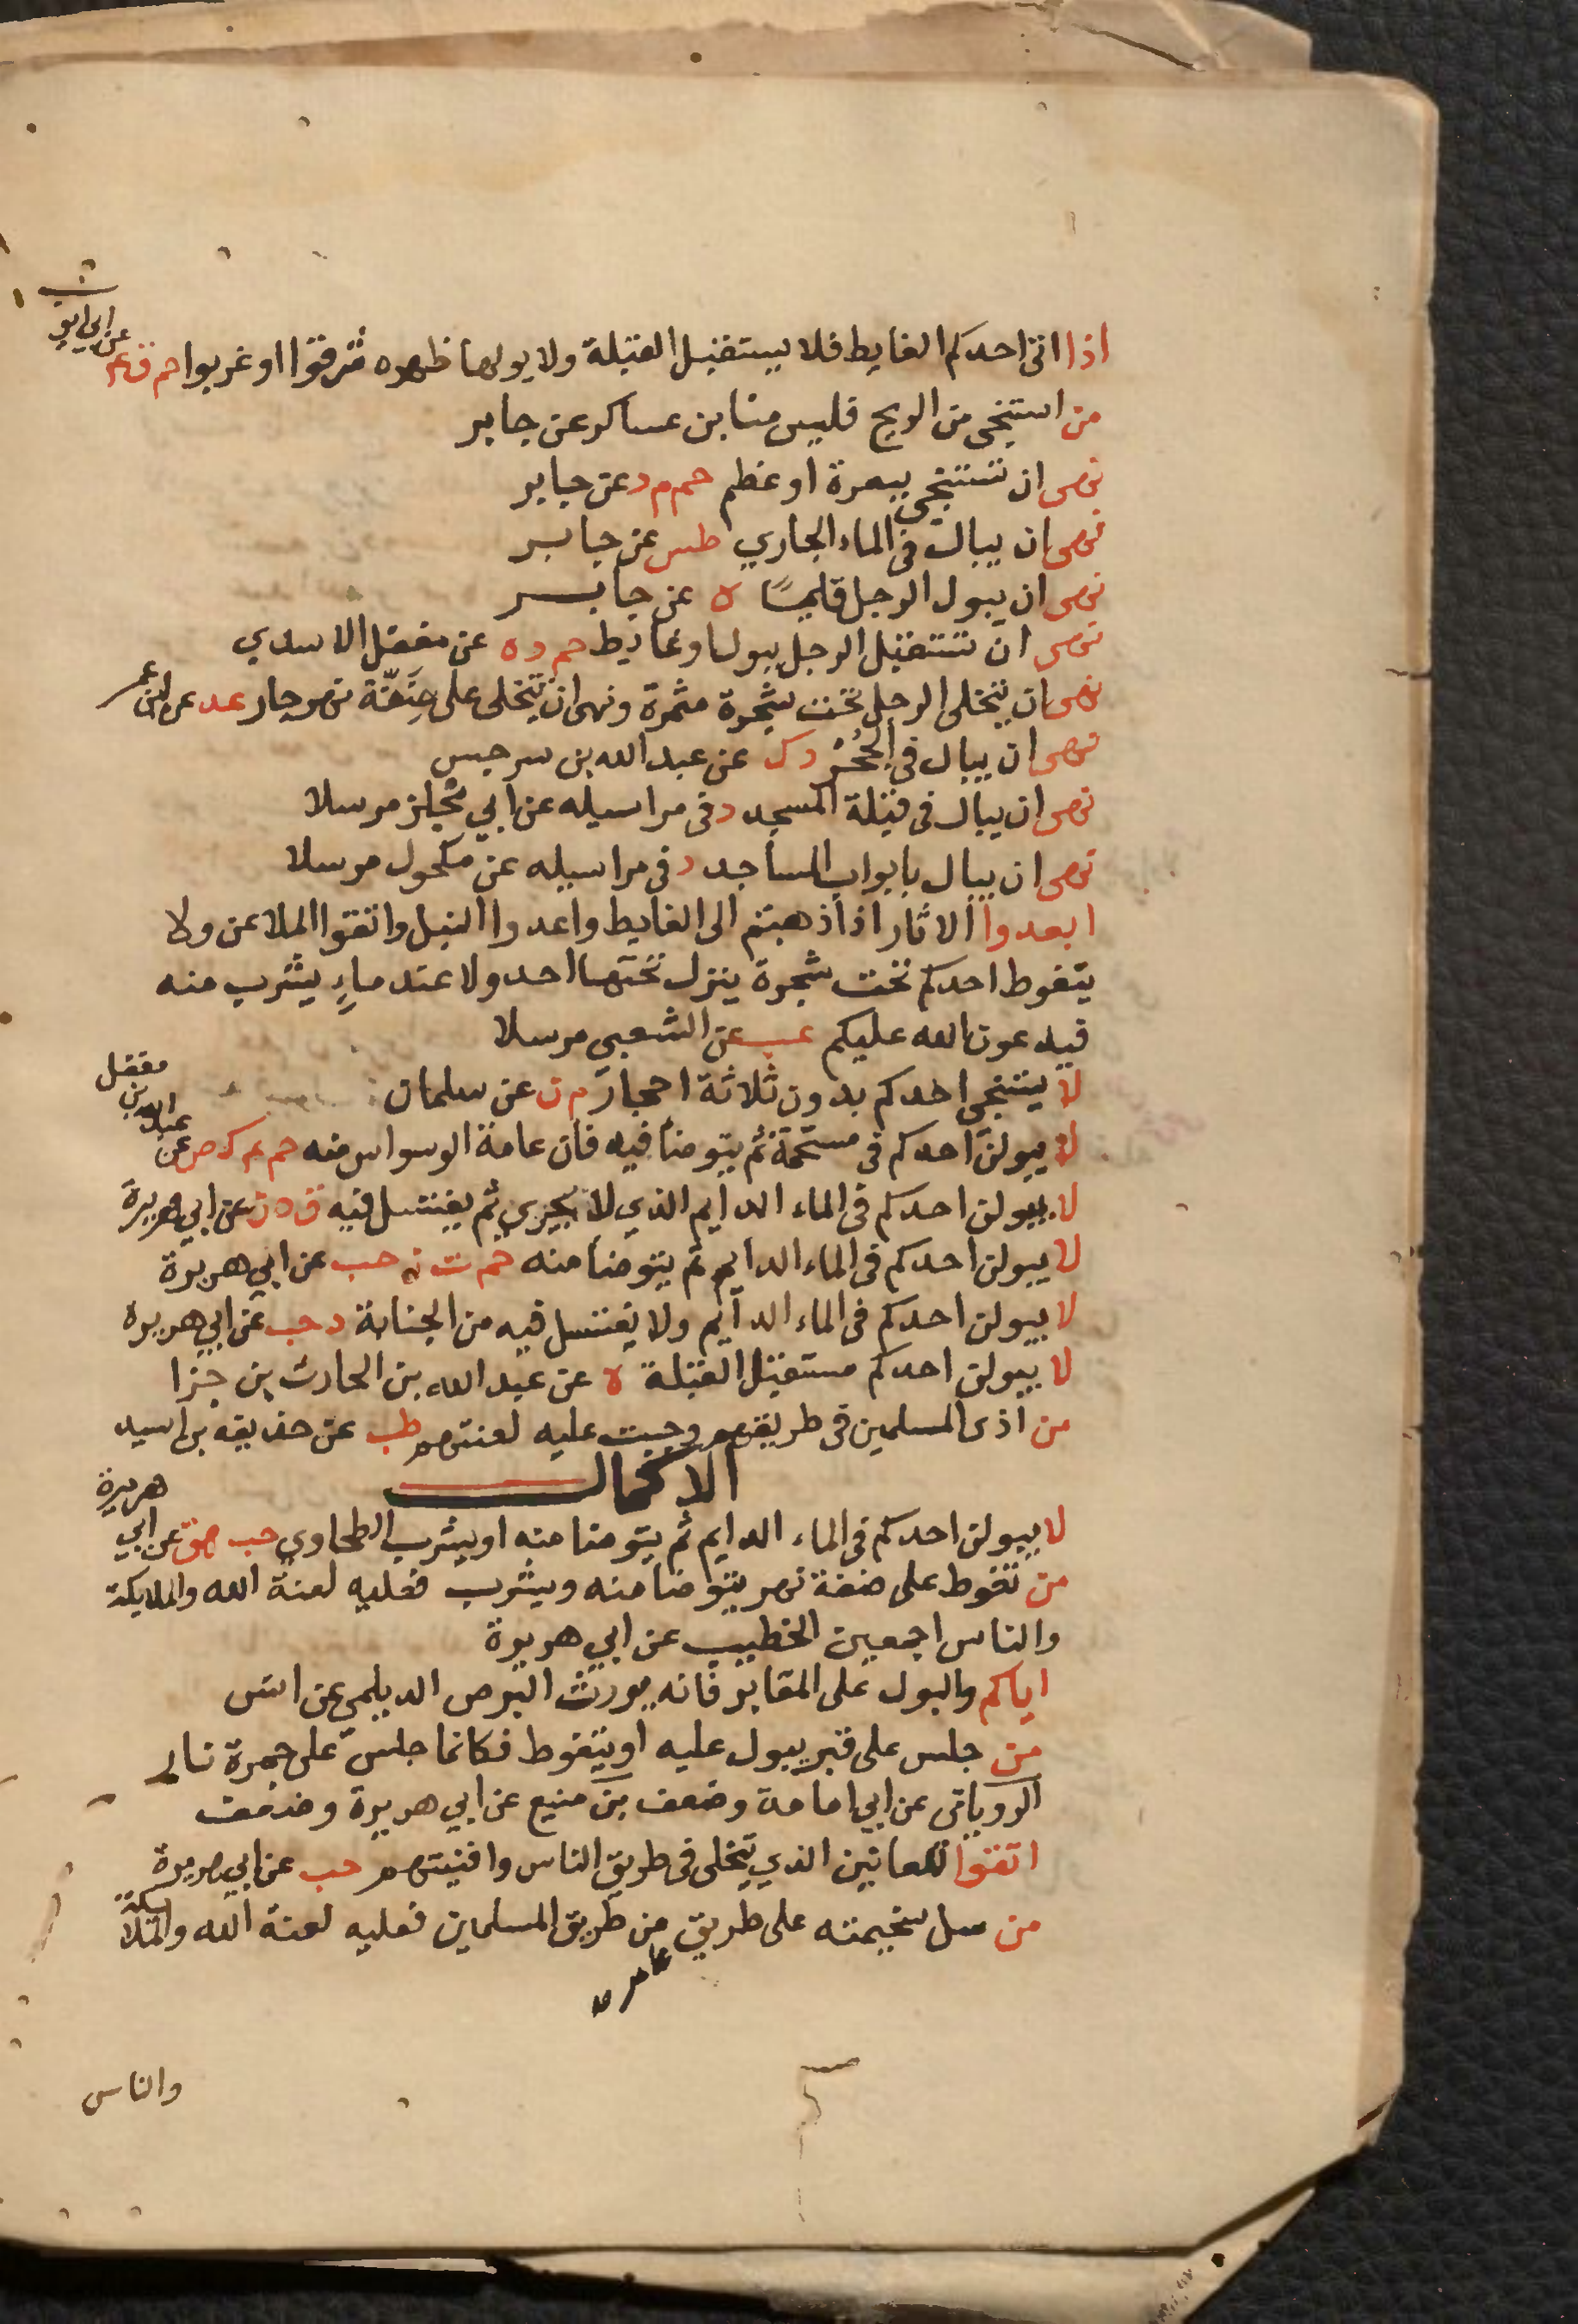 اذا اتى احدكم الغايط فلا يستقبل القبلة ولا يولها ظهره شرقوا او غربوا حم ق عم عن ابي ايوب
من استنجى من الريح فليس منا ابن عساكر عن جابر
نهى ان تستنجى ببعرة او عظم حم م د عن جابر
نهى ان يبال في الماء الجاري طس عن جابر
نهى ان يبول الرجل قايما ه عن جابر
نهى ان تستقبل الرجل ببول او غايط حم د ه عن معقل الاسدي
نهى ان يتخلى الرجل تحت شجرة مثمرة ونهى ان يتخلى على ضفة نهر جار عد عن ابن عمر
نهى ان يبال في الجحر د ك عن عبد الله بن سرجس
نهى ان يبال في قبلة المسجد د في مراسيله عن ابي مجلز مرسلا
نهى ان يبال بابواب المساجد د في مراسيله عن مكحول مرسلا
ابعدوا الاثار اذا ذهبتم الى الغايط واعدوا النبل واتقوا الملاعن ولا
يتغوط احدكم تحت شجرة ينزل تحتها احد ولا عند ماء يشرب منه
فيدعون الله عليكم عب عن الشعبي مرسلا
لا يستنجي احدكم بدون ثلاثة احجار م ن عن سلمان
لا يبولن احدكم في مستحمة ثم يتوضا فيه فان عامة الوسواس منه حم عم ك حب عن عبد الله بن مغفل
لا يبولن احدكم في الماء الدايم الذي لا يجري ثم يغتسل فيه ق د ن عن ابي هريرة
لا يبولن احدكم في الماء الدايم ثم يتوضا منه حم ت ن حب عن ابي هريرة
لا يبولن احدكم في الماء الدايم ولا يغتسل فيه من الجنابة د حب عن ابي هريرة
لا يبولن احدكم مستقبل القبلة ه عن عبد الله بن الحارث بن جزا
من اذى المسلمين في طريقهم وجبت عليه لعنتهم طب عن حذيفه بن اسيد
الاكمال
لا يبولن احدكم في الماء الدايم ثم يتوضا منه او يشرب الطحاوي حب هق عن ابي هريرة
من تغوط على ضفة نهر يتوضا منه ويشرب فعليه لعنة الله والملايكة
والناس اجمعين الخطيب عن ابي هريرة
اياكم والبول على المقابر فانه يورث البرص الديلمي عن انس
من جلس على قبر يبول عليه او يتغوط فكانما جلس على جمرة نار
الروياني عن ابي امامة وضعف بن منيع عن ابي هريرة وضعف
اتقوا اللعانين الذي يتخلى في طريق الناس وافنيتهم حب عن ابي هريرة
من سل سخيمته على طريق من طريق المسلمين فعليه لعنة الله والملايكة
عامره
والناس